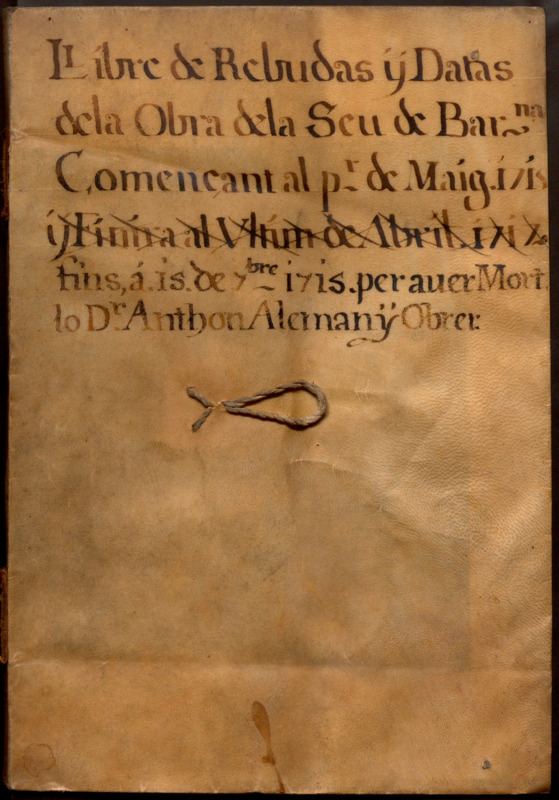 LLibre de Rebudas ÿ Datas
dela Obra dela Seu de Bar.na
Començant al pr. de Maig.1715
ÿ Finira al Vltim de Abril. 1717.
fins, á.15. de 7bre 1715. per auer Mort.
lo Dr. Anthon Alemanÿ Obrer.